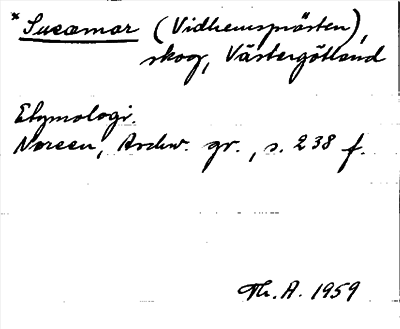 *Suearnar (Vidhemsprästen),
skog, Västergötland
Etymologi.
Noreen, Arkiv. gr., s. 238 f.
Th. A. 1959